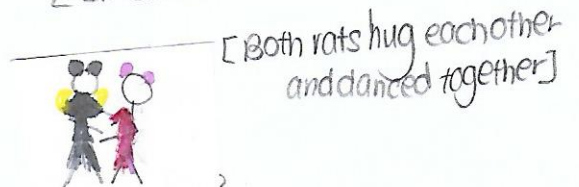 [Both rats hug eachother
and danced together]